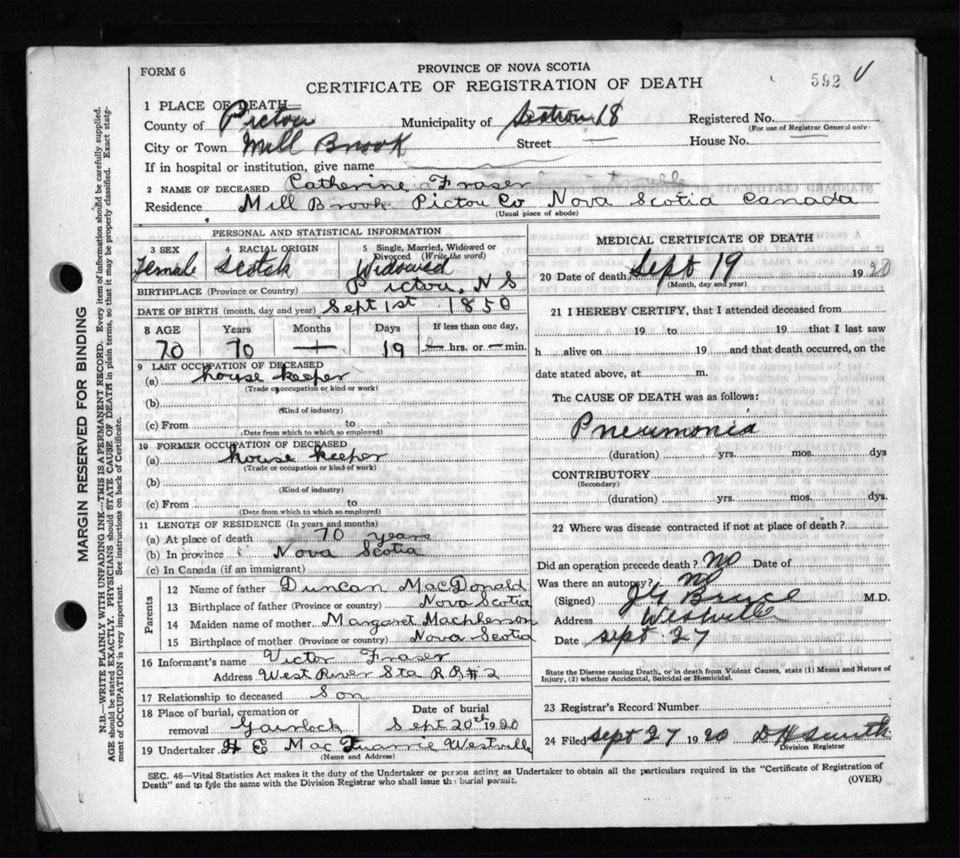 FORM 6
PROVINCE OF NOVA SCOTIA
CERTIFICATE OF REGISTRATION OF DEATH
592
1 PLACE OF DEATH
County of Pictou Municipality of Section 18 Registered No.
(For use of Registrar General only)
City or Town Mill Brook Street House No.
If in hospital or institution, give name
2 NAME OF DECEASED Catherine Fraser
Residence Mill Brook Pictou Co Nova Scotia Canada
(Usual place of abode)
PERSONAL AND STATISTICAL INFORMATION
3 SEX 4 RACIAL ORIGIN 5 Single, Married, Widowed or Divorced (Write the word)
Female Scotch Widowed
BIRTHPLACE (Province or Country) Pictou, N S
DATE OF BIRTH (month, day and year) Sept 1st 1850
8 AGE Years Months Days If less than one day,
70 70 19 hrs. or min.
9 LAST OCCUPATION OF DECEASED
(a) house keeper
(Trade or occupation or kind or work)
(b)
(Kind of industry)
(c) From to
(Date from which to which so employed)
10 FORMER OCCUPATION OF DECEASED
(a) house keeper
(Trade or occupation or kind of work)
(b)
(Kind of industry)
(c) From to
(Date from which to which so employed)
11 LENGTH OF RESIDENCE (In years and months)
(a) At place of death 70 years
(b) In province Nova Scotia
(c) In Canada (if an immigrant)
Parents
12 Name of father Duncan MacDonald
13 Birthplace of father (Province or country) Nova Scotia
14 Maiden name of mother Margaret Macpherson
15 Birthplace of mother (Province or country) Nova Scotia
16 Informant's name Victor Fraser
Address West River Sta R R # 2
17 Relationship to deceased Son
18 Place of burial, cremation or removal Date of burial
Gairloch Sept 20th 1920
19 Undertaker H E Mac Westville
(Name and Address)
MEDICAL CERTIFICATE OF DEATH
20 Date of death Sept 19 1920
(Month, day and year)
21 I HEREBY CERTIFY, that I attended deceased from
19 to 19 that I last saw
h alive on 19 and that death occurred, on the
date stated above, at m.
The CAUSE OF DEATH was as follows:
Pneumonia
(duration) yrs. mos. dys
CONTRIBUTORY
(Secondary)
(duration) yrs. mos. dys.
22 Where was disease contracted if not at place of death?
Did an operation precede death? No Date of
Was there an autopsy? No
(Signed) J G Bruce M.D.
Address Westville
Date Sept 27
State the Disease causing Death, or in death from Violent Causes, state (1) Means and Nature of
Injury, (2) whether Accidental, Suicidal or Homicidal.
23 Registrar's Record Number
24 Filed Sept 27 1920 D H Smith
Division Registrar
SEC. 46—Vital Statistics Act makes it the duty of the Undertaker or person acting as Undertaker to obtain all the particulars required in the "Certificate of Registration of
Death" and to fyle the same with the Division Registrar who shall issue the burial permit.
(OVER)
MARGIN RESERVED FOR BINDING
N.B.—WRITE PLAINLY WITH UNFADING INK—THIS IS A PERMANENT RECORD. Every item of information should be carefully supplied.
AGE should be stated EXACTLY. PHYSICIANS should STATE CAUSE OF DEATH in plain terms, so that it may be properly classified. Exact state-
ment of OCCUPATION is very important. See instructions on back of Certificate.